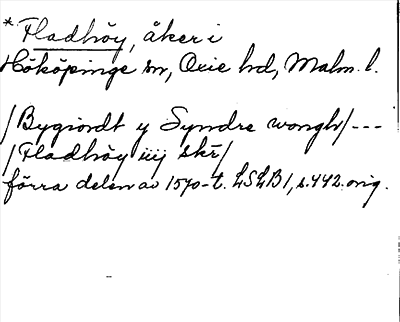 * Fladhöy, åker i
Hököpinge sn, Oxie hd, Malm. l.
/Bygiordt y Syndre wongh/---
/Fladhöy iiij skr/
förra delen av 1570-t. LSLB 1, s. 442. orig.